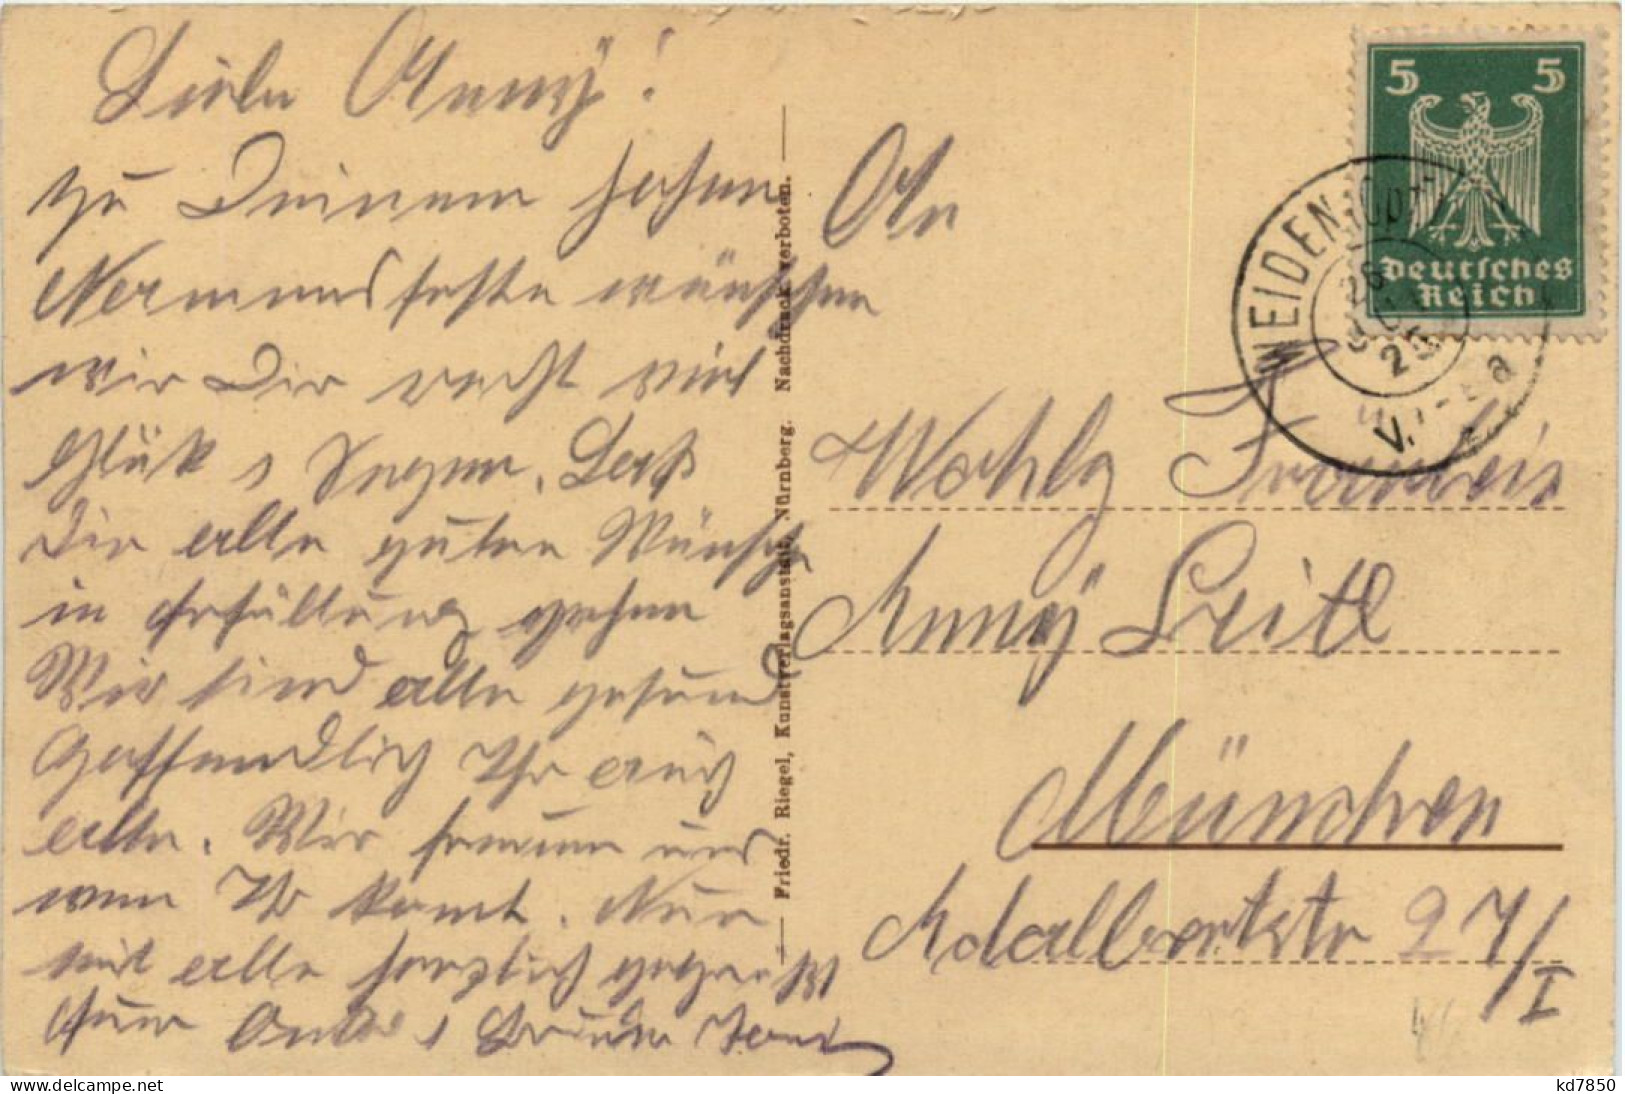 Liebe Anny!
Zu Deinem hohen
Nermensfeste wünschen
wir Dir recht viel
Glük u Segen. Laß
Dir alle guten Wünsche
in Erfüllung gehen
Wir sind alle gesund
Hoffendlich Ihr auch
alle. Wir freuen uns
wen Ihr komt. Nur
mit alle herzlich gegrüßt
Euer u Bruder
Friedr. Riegel, Kunstverlagsanstalt, Nürnberg. Nachdruck verboten.
5 5
Deutsches
Reich
WEIDEN (Opf)
26
25
V.
An
Wohlg Fräulein
Anny Leitl
München
Adalbertstr 27/I
kd7850